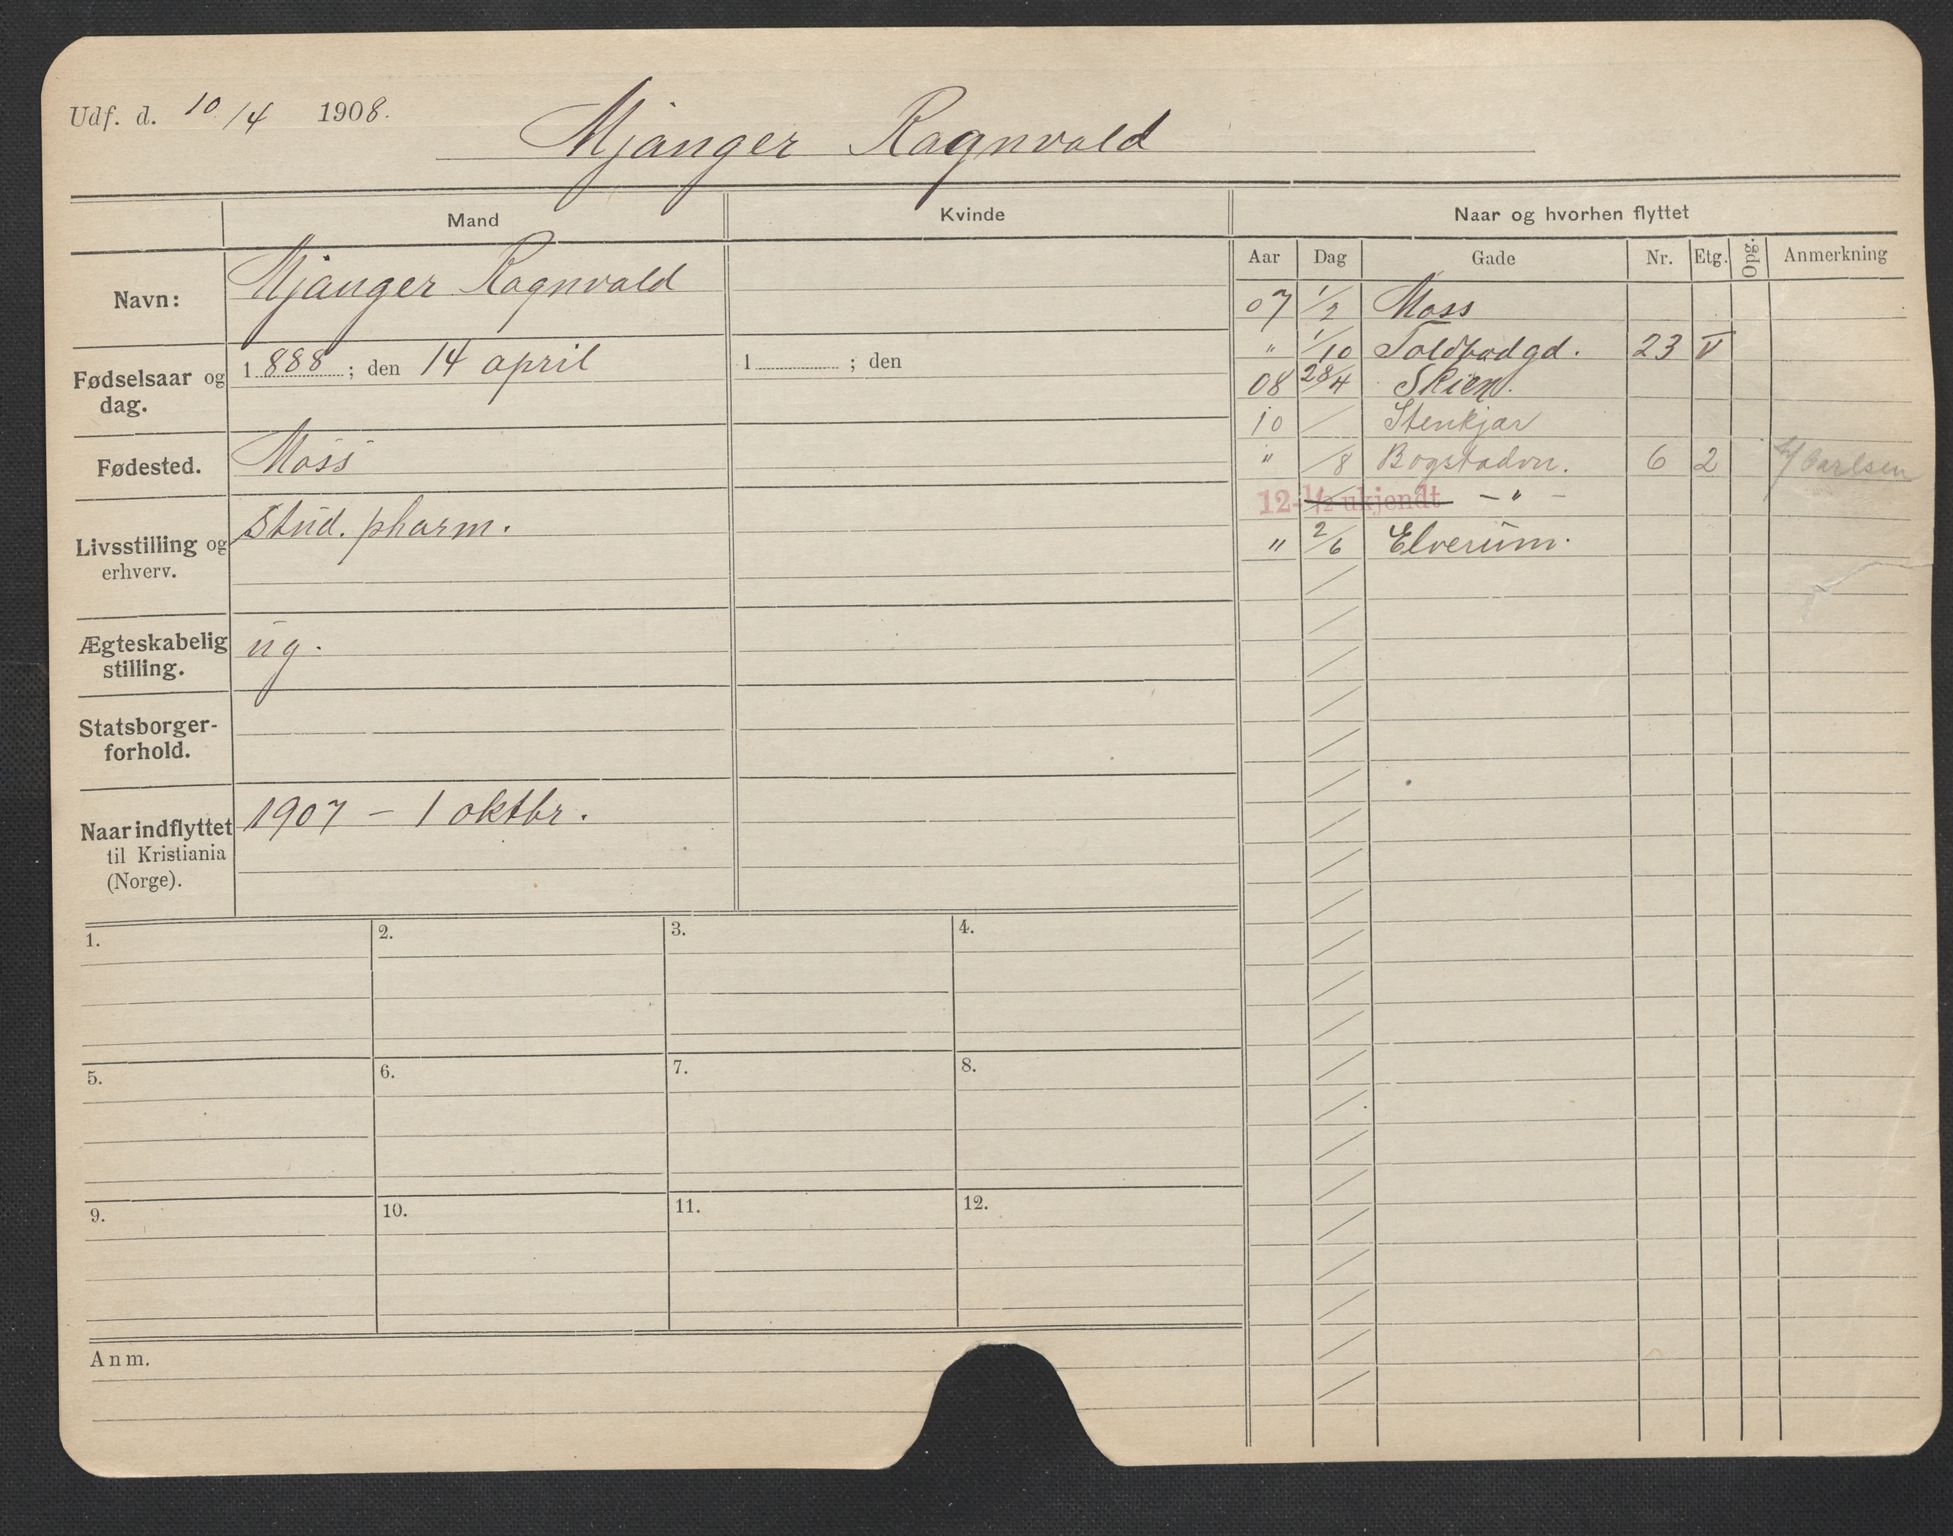 Udf. d. 10/4 1908.
Mjanger Ragnvald
Mand Kvinde Naar og hvorhen flyttet
Aar Dag Gade Nr. Etg. Opg. Anmerkning
Navn: Mjanger Ragnvald
Fødselsaar og dag. 1888; den 14 april 1 ; den
Fødested. Moss
Livsstilling og erhverv. Stud. pharm.
Ægteskabelig stilling. ug.
Statsborger-
forhold.
Naar indflyttet 1907 – 1 oktbr.
til Kristiania
(Norge).
07 1/2 Moss
" 1/10 Toldbodgd. 23 V
08 28/4 Skien.
10 / Stenkjær
" /8 Bogstadvn. 6 2 h/ Carlsen
12-1/2 ukjendt – " –
" 2/6 Elverum.
1. 2. 3. 4.
5. 6. 7. 8.
9. 10. 11. 12.
Anm.